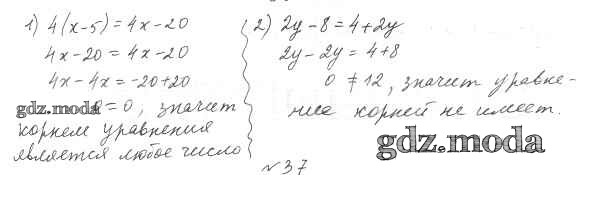 1) 4(x-5)=4x-20
4x-20=4x-20
4x-4x=-20+20
gdz.moda 0=0, значит
корнем уравнения
является любое число
2) 2y-8=4+2y
2y-2y=4+8
0≠12, значит уравне-
ние корней не имеет.
gdz.moda
№37